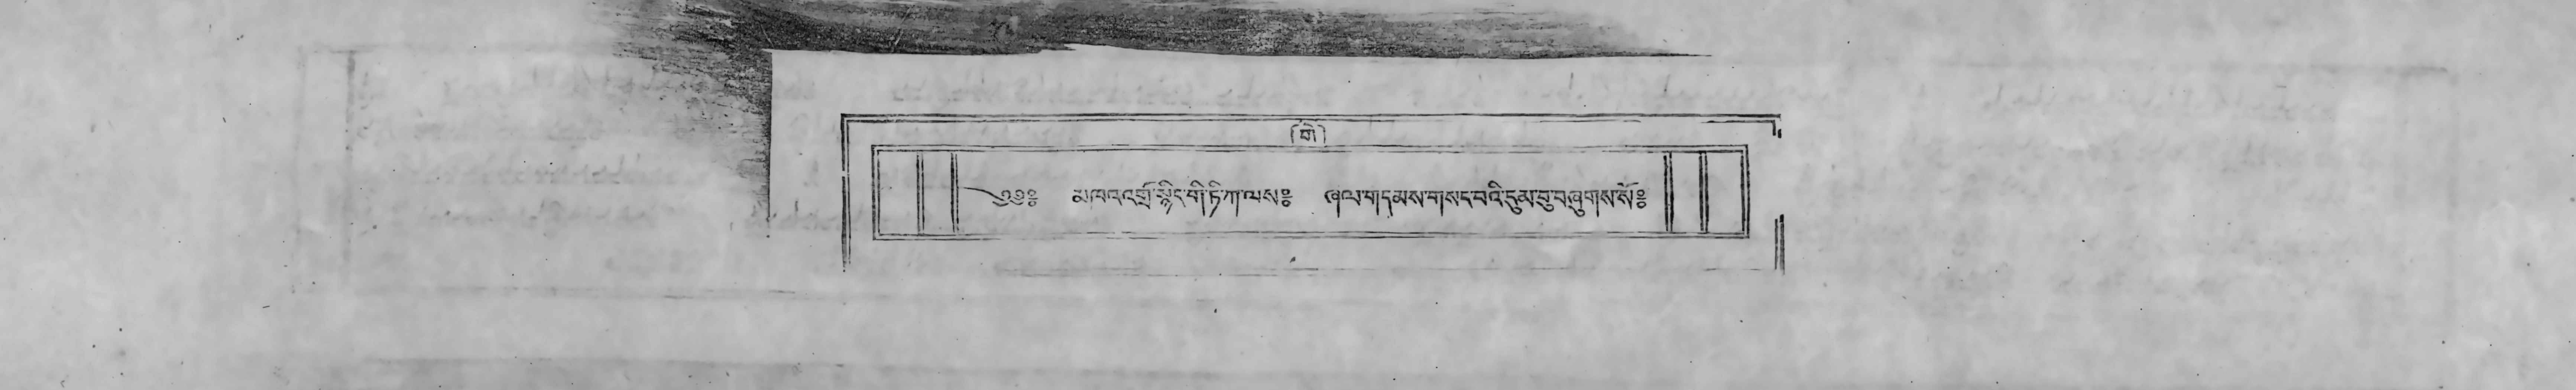 (གེ)
༄༅༔ མཁའ་འགྲོ་སྙིང་གི་ཏི་ཀ་ལས༔ ཞལ་གདམས་གསང་བའི་དུམ་བུ་བཞུགས་སོ༔